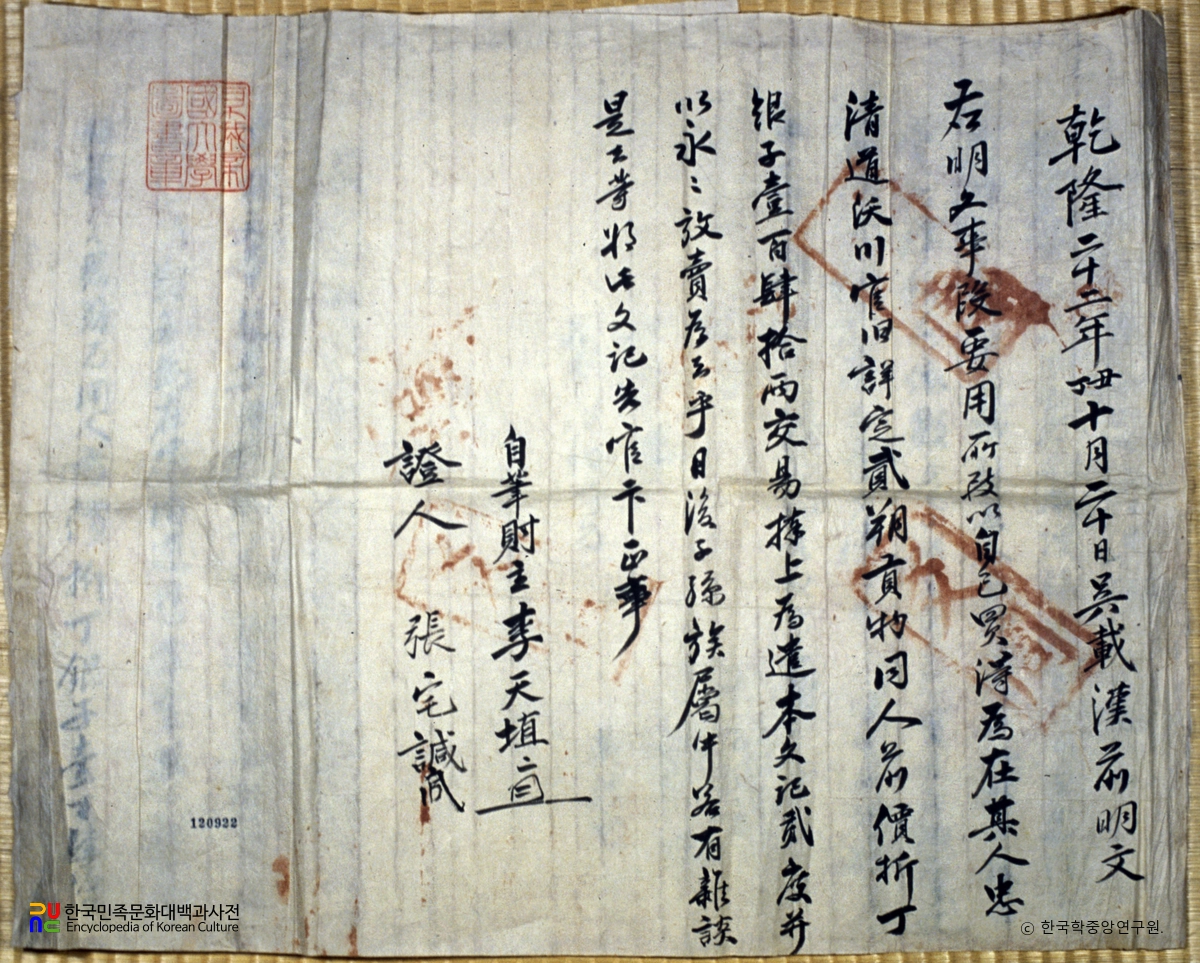 乾隆二十二年丁丑十月二十日吳載漢前明文
右明文事段要用所致以自己買得爲在其人忠
清道沃川官旧詳定貳朔貢物同人前價折丁
銀子壹百肆拾兩交易捧上爲遣本文記貳度幷
以永々放賣爲去乎日後子孫族屬中若有雜談
是去等將此文記告官卞正事
自筆財主李天埴
證人 張宅誠
120922
한국민족문화대백과사전
Encyclopedia of Korean Culture
ⓒ 한국학중앙연구원.